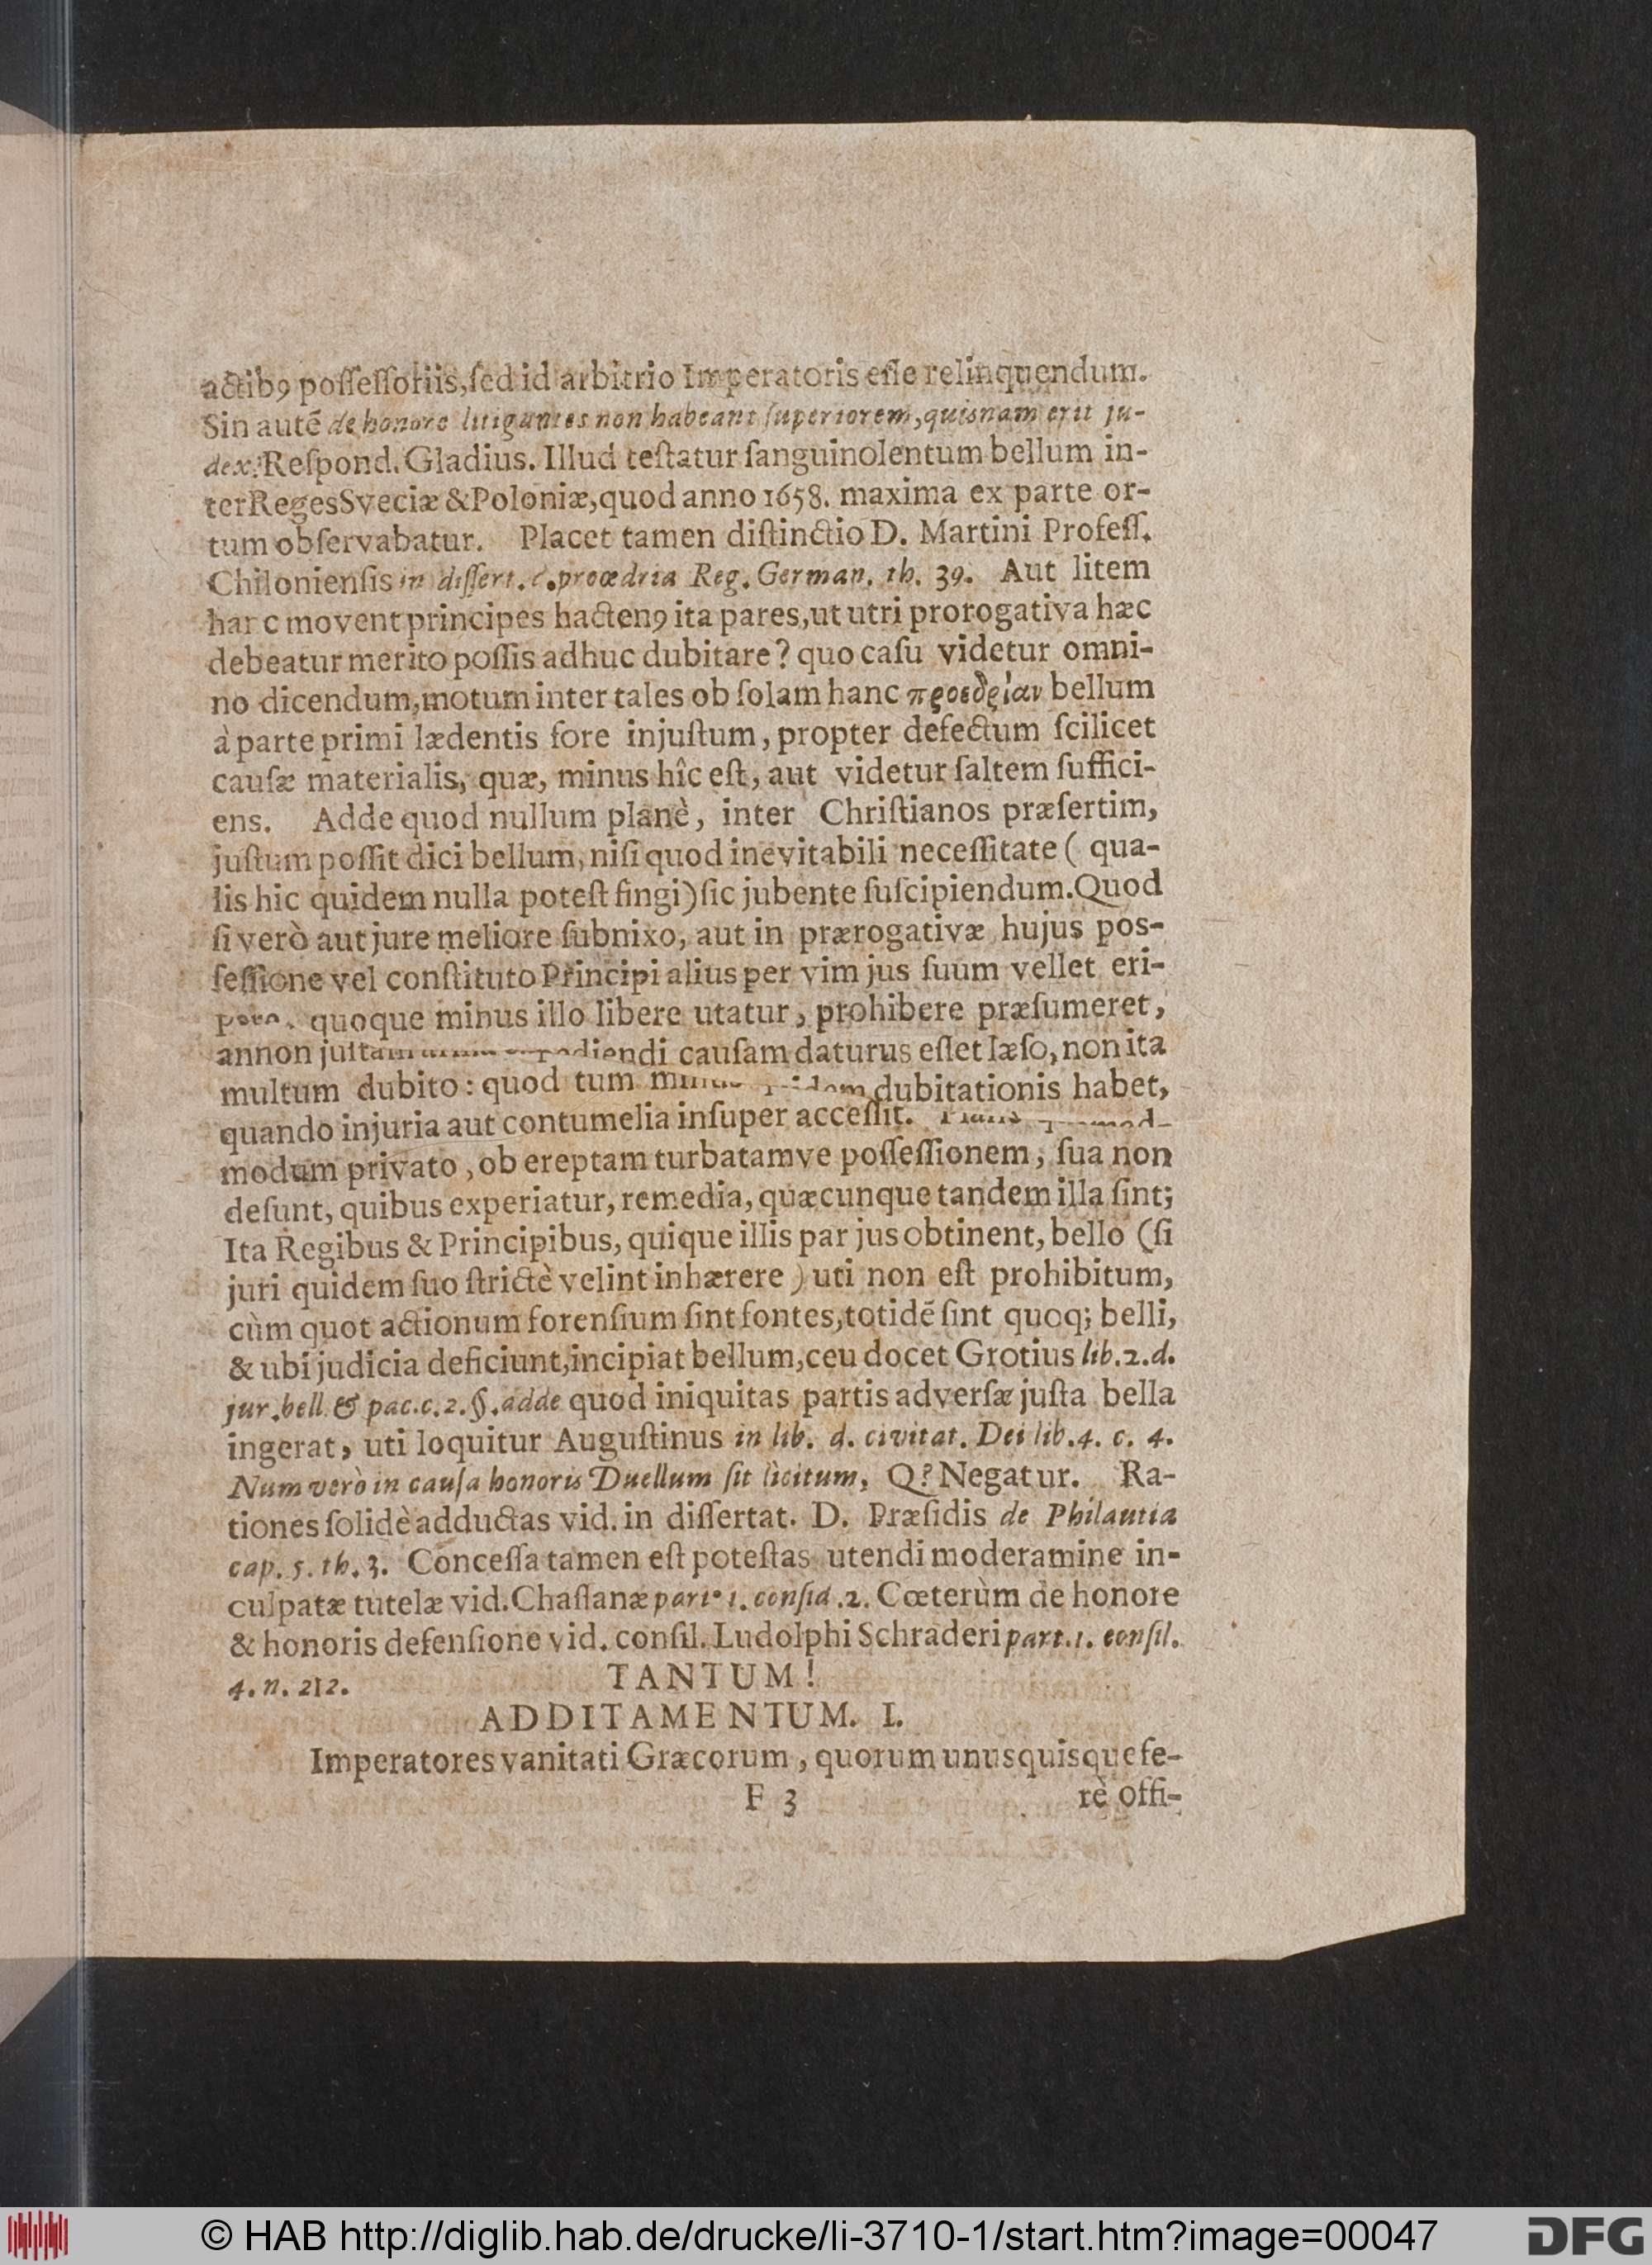 actibꝰ poſſeſſoriis, ſed id arbitrio Imperatoris eſſe relinquendum.
Sin autẽ de honore litigantes non habeant ſuperiorem, quisnam erit ju-
dex? Reſpond. Gladius. Illud teſtatur ſanguinolentum bellum in-
ter Reges Sveciæ & Poloniæ, quod anno 1658. maxima ex parte or-
tum obſervabatur. Placet tamen diſtinctio D. Martini Profeſſ.
Chilonienſis in diſſert. d. proœdria Reg. German. th. 39. Aut litem
hanc movent principes hactenꝰ ita pares, ut utri prorogativa hæc
debeatur merito poſſis adhuc dubitare? quo caſu videtur omni-
no dicendum, motum inter tales ob ſolam hanc προεδρίαν bellum
à parte primi lædentis fore injuſtum, propter defectum ſcilicet
cauſæ materialis, quæ, minus hîc eſt, aut videtur ſaltem ſuffici-
ens. Adde quod nullum planè, inter Chriſtianos præſertim,
juſtum poſſit dici bellum, niſi quod inevitabili neceſſitate ( qua-
lis hic quidem nulla poteſt fingi) ſic jubente ſuſcipiendum. Quod
ſi verò aut jure meliore ſubnixo, aut in prærogativæ hujus pos-
ſeſſione vel conſtituto Principi alius per vim jus ſuum vellet eri-
quoque minus illo libere utatur, prohibere præſumeret,
annon cauſam daturus eſſet læſo, non ita
multum dubito: quod tum dubitationis habet,
quando injuria aut contumelia inſuper acceſſit.
modum privato, ob ereptam turbatamve poſſeſſionem, ſua non
deſunt, quibus experiatur, remedia, quæcunque tandem illa ſint;
Ita Regibus & Principibus, quique illis par jus obtinent, bello (ſi
juri quidem ſuo ſtrictè velint inhærere ) uti non eſt prohibitum,
cùm quot actionum forenſium ſint fontes, totidẽ ſint quoq; belli,
& ubi judicia deficiunt, incipiat bellum, ceu docet Grotius lib. 2. d.
jur. bell. & pac. c. 2. §. adde quod iniquitas partis adverſæ juſta bella
ingerat, uti loquitur Auguſtinus in lib. d. civitat. Dei lib. 4. c. 4.
Num verò in cauſa honoris Duellum ſit licitum, Q? Negatur. Ra-
tiones ſolidè adductas vid. in diſſertat. D. Præſidis de Philautia
cap. 5. th. 3. Conceſſa tamen eſt poteſtas utendi moderamine in-
culpatæ tutelæ vid. Chaſſanæ part. 1. conſid. 2. Cœterùm de honore
& honoris defenſione vid. conſil. Ludolphi Schraderi part. 1. conſil.
4. n. 212. TANTUM!
ADDITAMENTUM. I.
Imperatores vanitati Græcorum, quorum unusquisque fe-
F 3 rè offi-
© HAB http://diglib.hab.de/drucke/li-3710-1/start.htm?image=00047
DFG